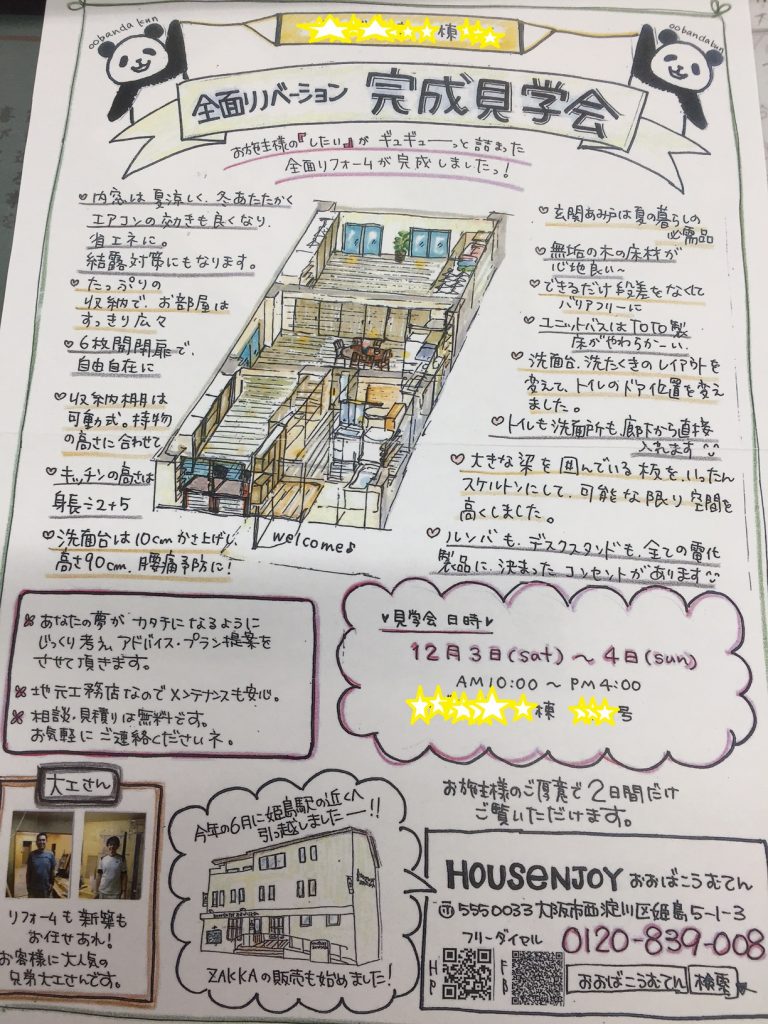 棟
oobanda kun
oobanda kun
全面リノベーション 完成見学会
お施主様の『したい』が ギュギューーっと詰まった
全面リフォームが完成しましたっ!
♡内窓は夏涼しく、冬あたたかく
エアコンの効きも良くなり、
省エネに。
結露対策にもなります。
♡たっぷりの
収納で、お部屋は
すっきり広々
♡6枚開閉扉で、
自由自在に
♡収納棚は
可動式。持物
の高さに合わせて
♡キッチンの高さは
身長÷2+5
♡洗面台は10cmかさ上げし、
高さ90cm、腰痛予防に!
♡玄関あみ戸は夏の暮らしの
必需品
♡無垢の木の床材が
心地良い〜
♡できるだけ段差をなくして
バリアフリーに
♡ユニットバスはTOTO製
床がやわらかーい。
♡洗面台、洗たくきのレイアウトを
変えて、トイレのドア位置を変え
ました。
♡トイレも洗面所も、廊下から直接
入れます
♡大きな梁を囲んでいる板を、いったん
スケルトンにして、可能な限り空間を
高くしました。
♡ルンバも、デスクスタンドも、全ての電化
製品に、決まったコンセントがあります
welcome♪
あなたの夢が カタチになるように
じっくり考え、アドバイス・プラン提案を
させて頂きます。
地元工務店なのでメンテナンスも安心。
相談・見積りは無料です。
お気軽にご連絡くださいネ。
♥見学会 日時♥
12月3日(sat)〜4日(sun)
AM10:00〜PM4:00
棟 号
お施主様のご厚意で2日間だけ
ご覧いただけます。
大工さん
リフォームも新築も
お任せあれ!
お客様に大人気の
兄弟大工さんです。
今年の6月に姫島駅の近くへ
引っ越しましたーー!!
ZAKKAの販売も始めました!
HOUSENJOY おおばこうむてん
〒5550033大阪市西淀川区姫島5-1-3
フリーダイヤル 0120-839-008
HP FB おおばこうむてん 検索